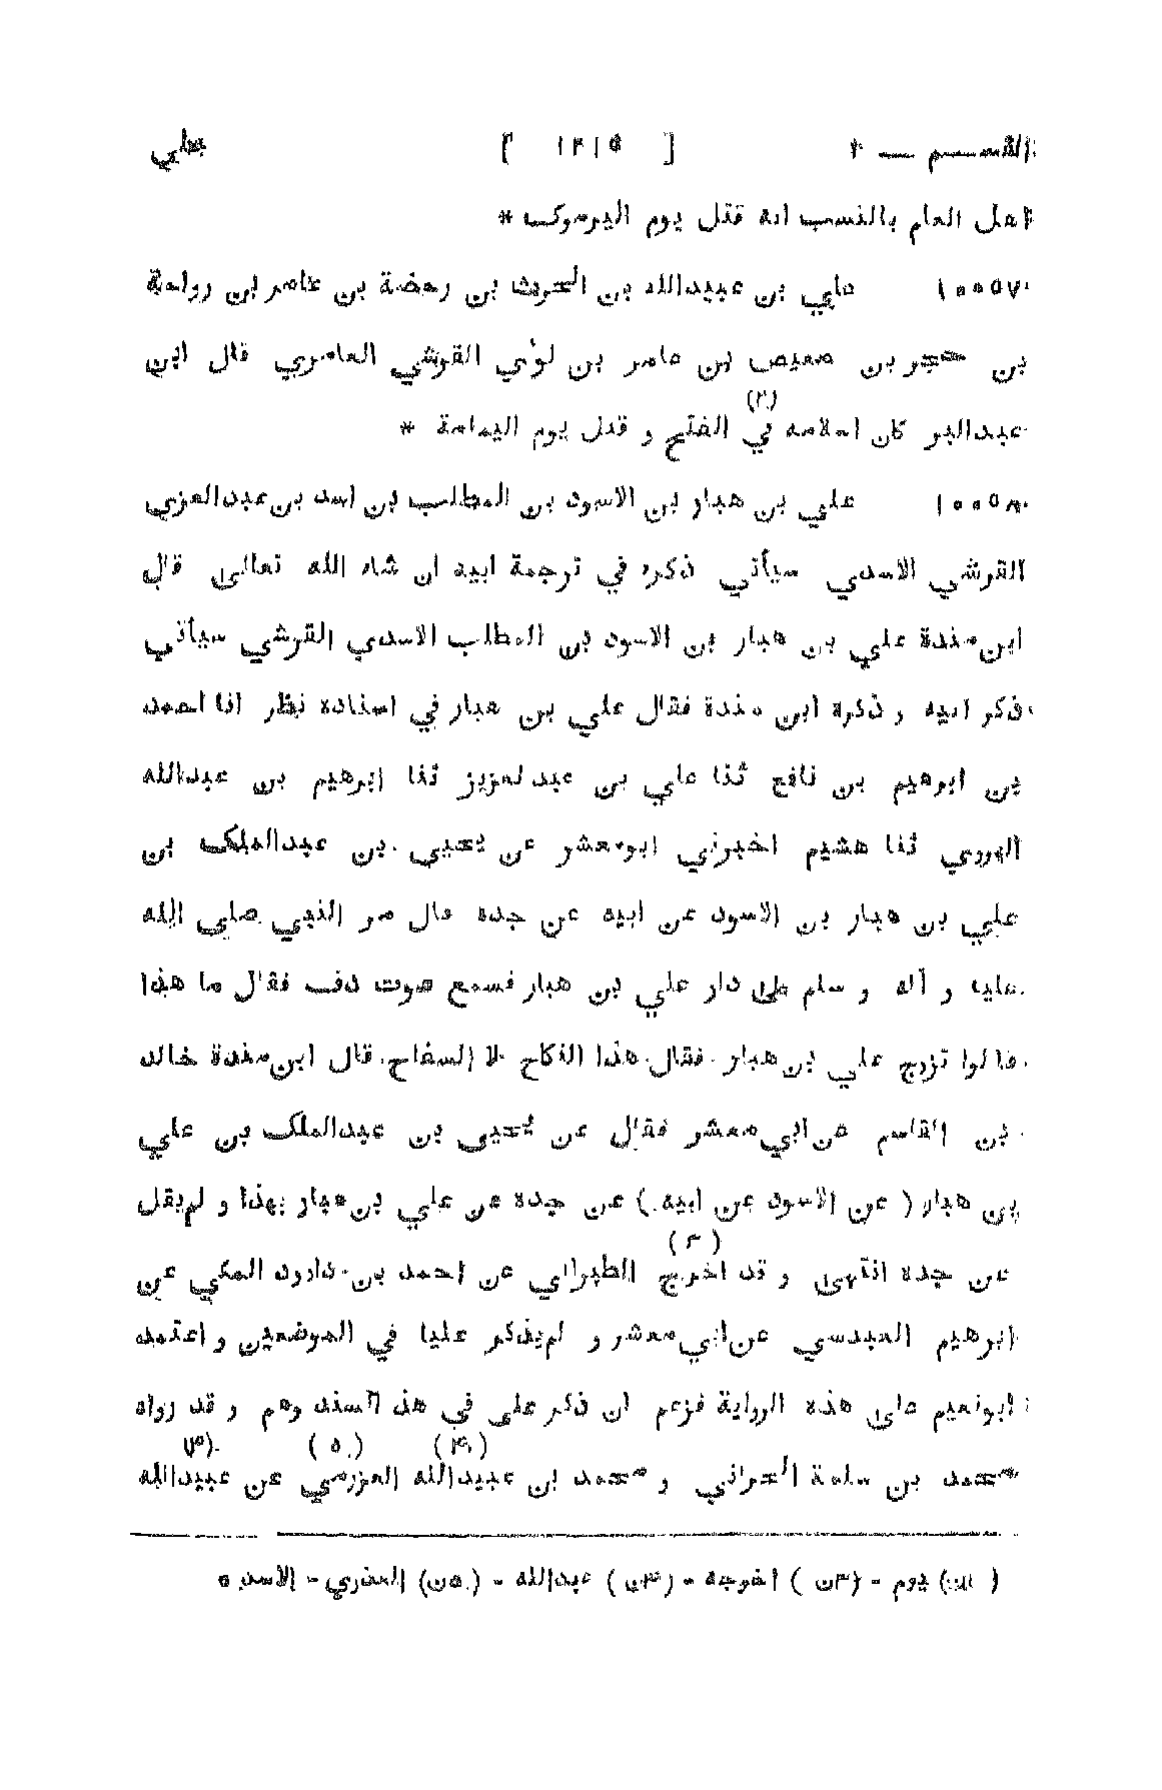 القسم — ٢ [ ١٢١٥ ] علي
اهل العلم بالنسب انه قتل يوم اليرموك *
١٠٠٥٧ علي بن عبيدالله بن الحرث بن رحضة بن عامر بن رواحة
بن حجر بن معيص بن عامر بن لؤي القرشي العامري قال ابن
عبدالبر كان اسلامه في (٢) الفتح و قتل يوم اليمامة *
١٠٠٥٨ علي بن هبار بن الاسود بن المطلب بن اسد بن عبدالعزى
القرشي الاسدي سيأتي ذكره في ترجمة ابيه ان شاء الله تعالى قال
ابن مندة علي بن هبار بن الاسود بن المطلب الاسدي القرشي سيأتي
ذكر ابيه و ذكره ابن مندة فقال علي بن هبار في اسناده نظر انا احمد
بن ابرهيم بن نافع ثنا علي بن عبد لعزيز ثنا ابرهيم بن عبدالله
الهروي ثنا هشيم اخبرني ابومعشر عن يحيى بن عبدالملك بن
علي بن هبار بن الاسود عن ابيه عن جده قال مر النبي صلى الله
عليه و آله و سلم على دار علي بن هبار فسمع صوت دف فقال ما هذا
قالوا تزوج علي بن هبار فقال هذا النكاح لا السفاح قال ابن مندة خالد
بن القاسم عن ابي معشر فقال عن يحيى بن عبدالملك بن علي
بن هبار ( عن الاسود عن ابيه ) عن جده عن علي بن هبار بهذا و لم يقل
عن جده انتهى و قد اخرج (٣) الطبراني عن احمد بن داود المكي عن
ابرهيم العبدسي عن ابي معشر و لم يذكر عليا في الموضعين و اعتمد
ابونعيم على هذه الرواية فزعم ان ذكر علي في هذ السند وهم و قد رواه
محمد بن سلمة الحراني و محمد بن عبيدالله (٤) العزرمي (٥) عن عبيدالله (٣)
(٢ن) يوم - (٣ن) اخرجه - (٤ن) عبدالله - (٥ن) العذري - الاسد ٥